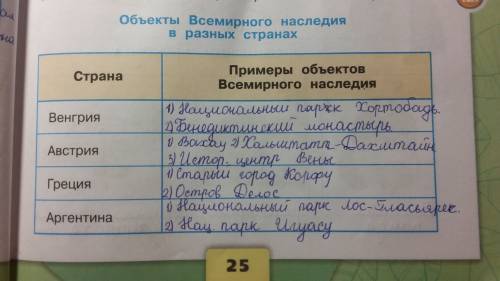 Объекты Всемирного наследия
в разных странах
Страна
Примеры объектов
Всемирного наследия
Венгрия
1) Национальный паркк Хортобадь.
2) Бенедиктинский монастырь
Австрия
1) Вахау 2) Хальштатт-Дахштайн
3) Истор. центр Вены
Греция
1) Старый город Корфу
2) Остров Делос
Аргентина
1) Национальный парк Лос-Гласьярес.
2) Нац. парк Игуасу
25